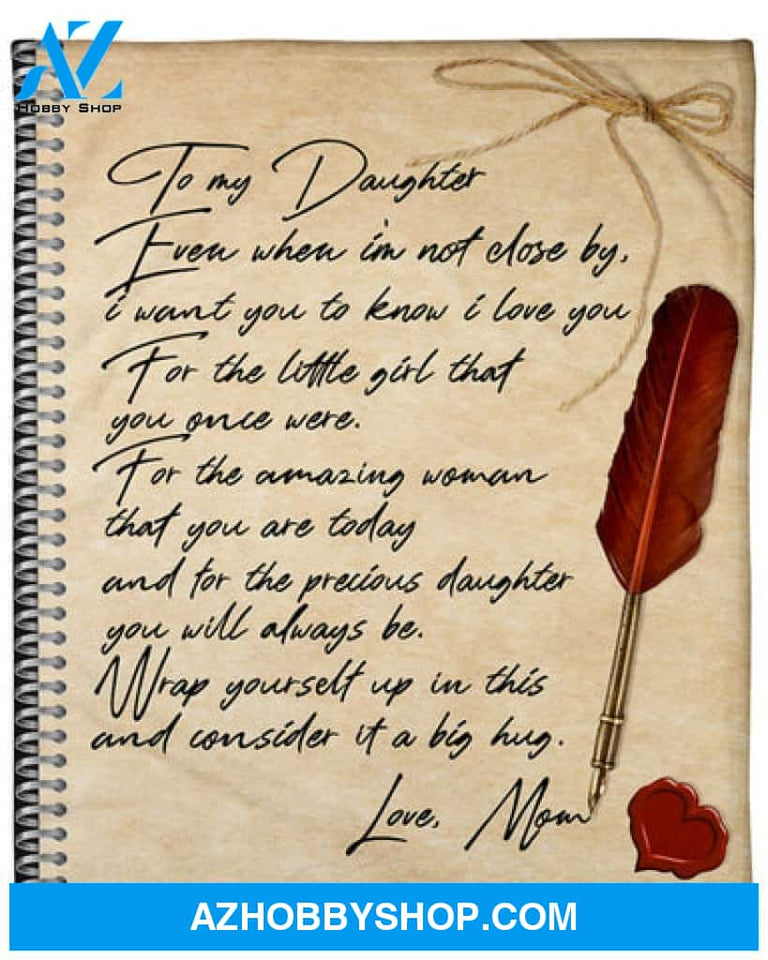 AZ
HOBBY SHOP
To my Daughter
Even when i'm not close by,
i want you to know i love you
For the little girl that
you once were.
For the amazing woman
that you are today
and for the precious daughter
you will always be.
Wrap yourself up in this
and consider it a big hug.
Love, Mom
AZHOBBYSHOP.COM